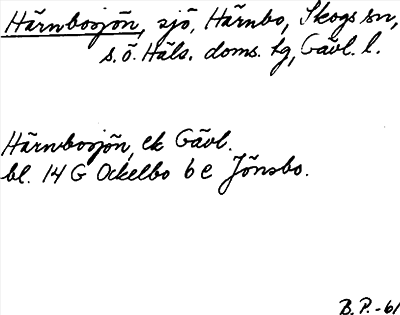 Härnbosjön, sjö, Härnbo, Skogs sn,
s.ö. Häls. doms. tg, Gävl. l.
Härnbosjön, ek Gävl.
bl. 14 G Ockelbo 6 e Jönsbo.
B.P.-61